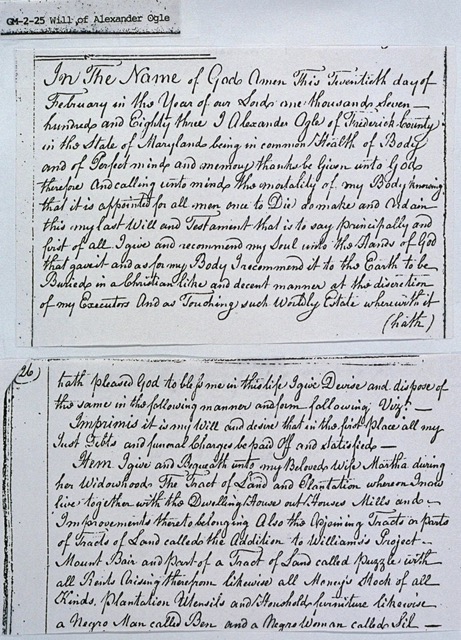 GM-2-25 Will of Alexander Ogle
In The Name of God Amen This Twentieth day of
February in the Year of our Lord one thousand Seven
hundred and Eighty three I Alexander Ogle of Frederick County
in the State of Maryland being in common Health of Body
and of Perfect mind and memory thanks be Given unto God
therefore And calling unto mind the mortality of my Body knowing
that it is appointed for all men once to Die do make and Ordain
this my Last Will and Testament that is to say principally and
first of all I give and recommend my Soul unto the Hands of God
that gave it and as for my Body I recommend it to the Earth to be
Buried in a Christian like and decent manner at the discretion
of my Executors And as Touching such Wordly Estate wherewith it
(hath)
(26)
hath pleased God to bless me in this life I give Devise and dispose of
the same in the following manner and form following Viz.t —
Imprimis it is my Will and desire that in the first Place all my
Just Debts and funeral Charges be paid Off and Satisfied —
Item I give and Bequeath unto my Beloved Wife Martha during
her Widowhood The Tract of Land and Plantation whereon I now
live together with the Dwelling House out Houses Mills and —
Improvements thereto belonging Also the Adjoining Tracts or parts
of Tracts of Land called the Addition to William's Project —
Mount Bair and part of a Tract of Land called Puzzle with
all Rents Arising therefrom likewise all Moneys Stock of all
Kinds, Plantation Utensils and Household furniture likewise
a Negro Man called Ben and a Negro Woman called Sil —